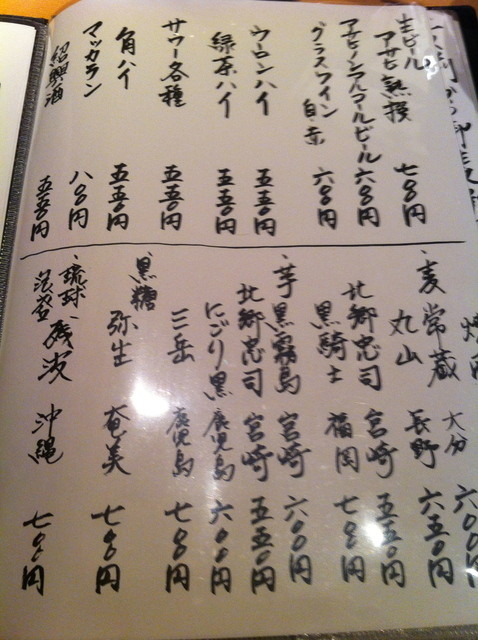 生ビール
アサヒ熟撰 七〇〇円
アサヒノンアルコールビール 六〇〇円
グラスワイン 白・赤 六〇〇円
ウーロンハイ 五五〇円
緑茶ハイ 五五〇円
サワー各種 五五〇円
角ハイ 五五〇円
マッカラン 八〇〇円
紹興酒 五五〇円
麦 常蔵 大分 六〇〇円
丸山 長野 六五〇円
北郷忠司 宮崎 五五〇円
黒騎士 福岡 七〇〇円
芋 黒霧島 宮崎 六〇〇円
北郷忠司 宮崎 五五〇円
にごり黒 鹿児島 六〇〇円
三岳 鹿児島 七〇〇円
黒糖 弥生 奄美 七〇〇円
琉球泡盛 残波 沖縄 七〇〇円